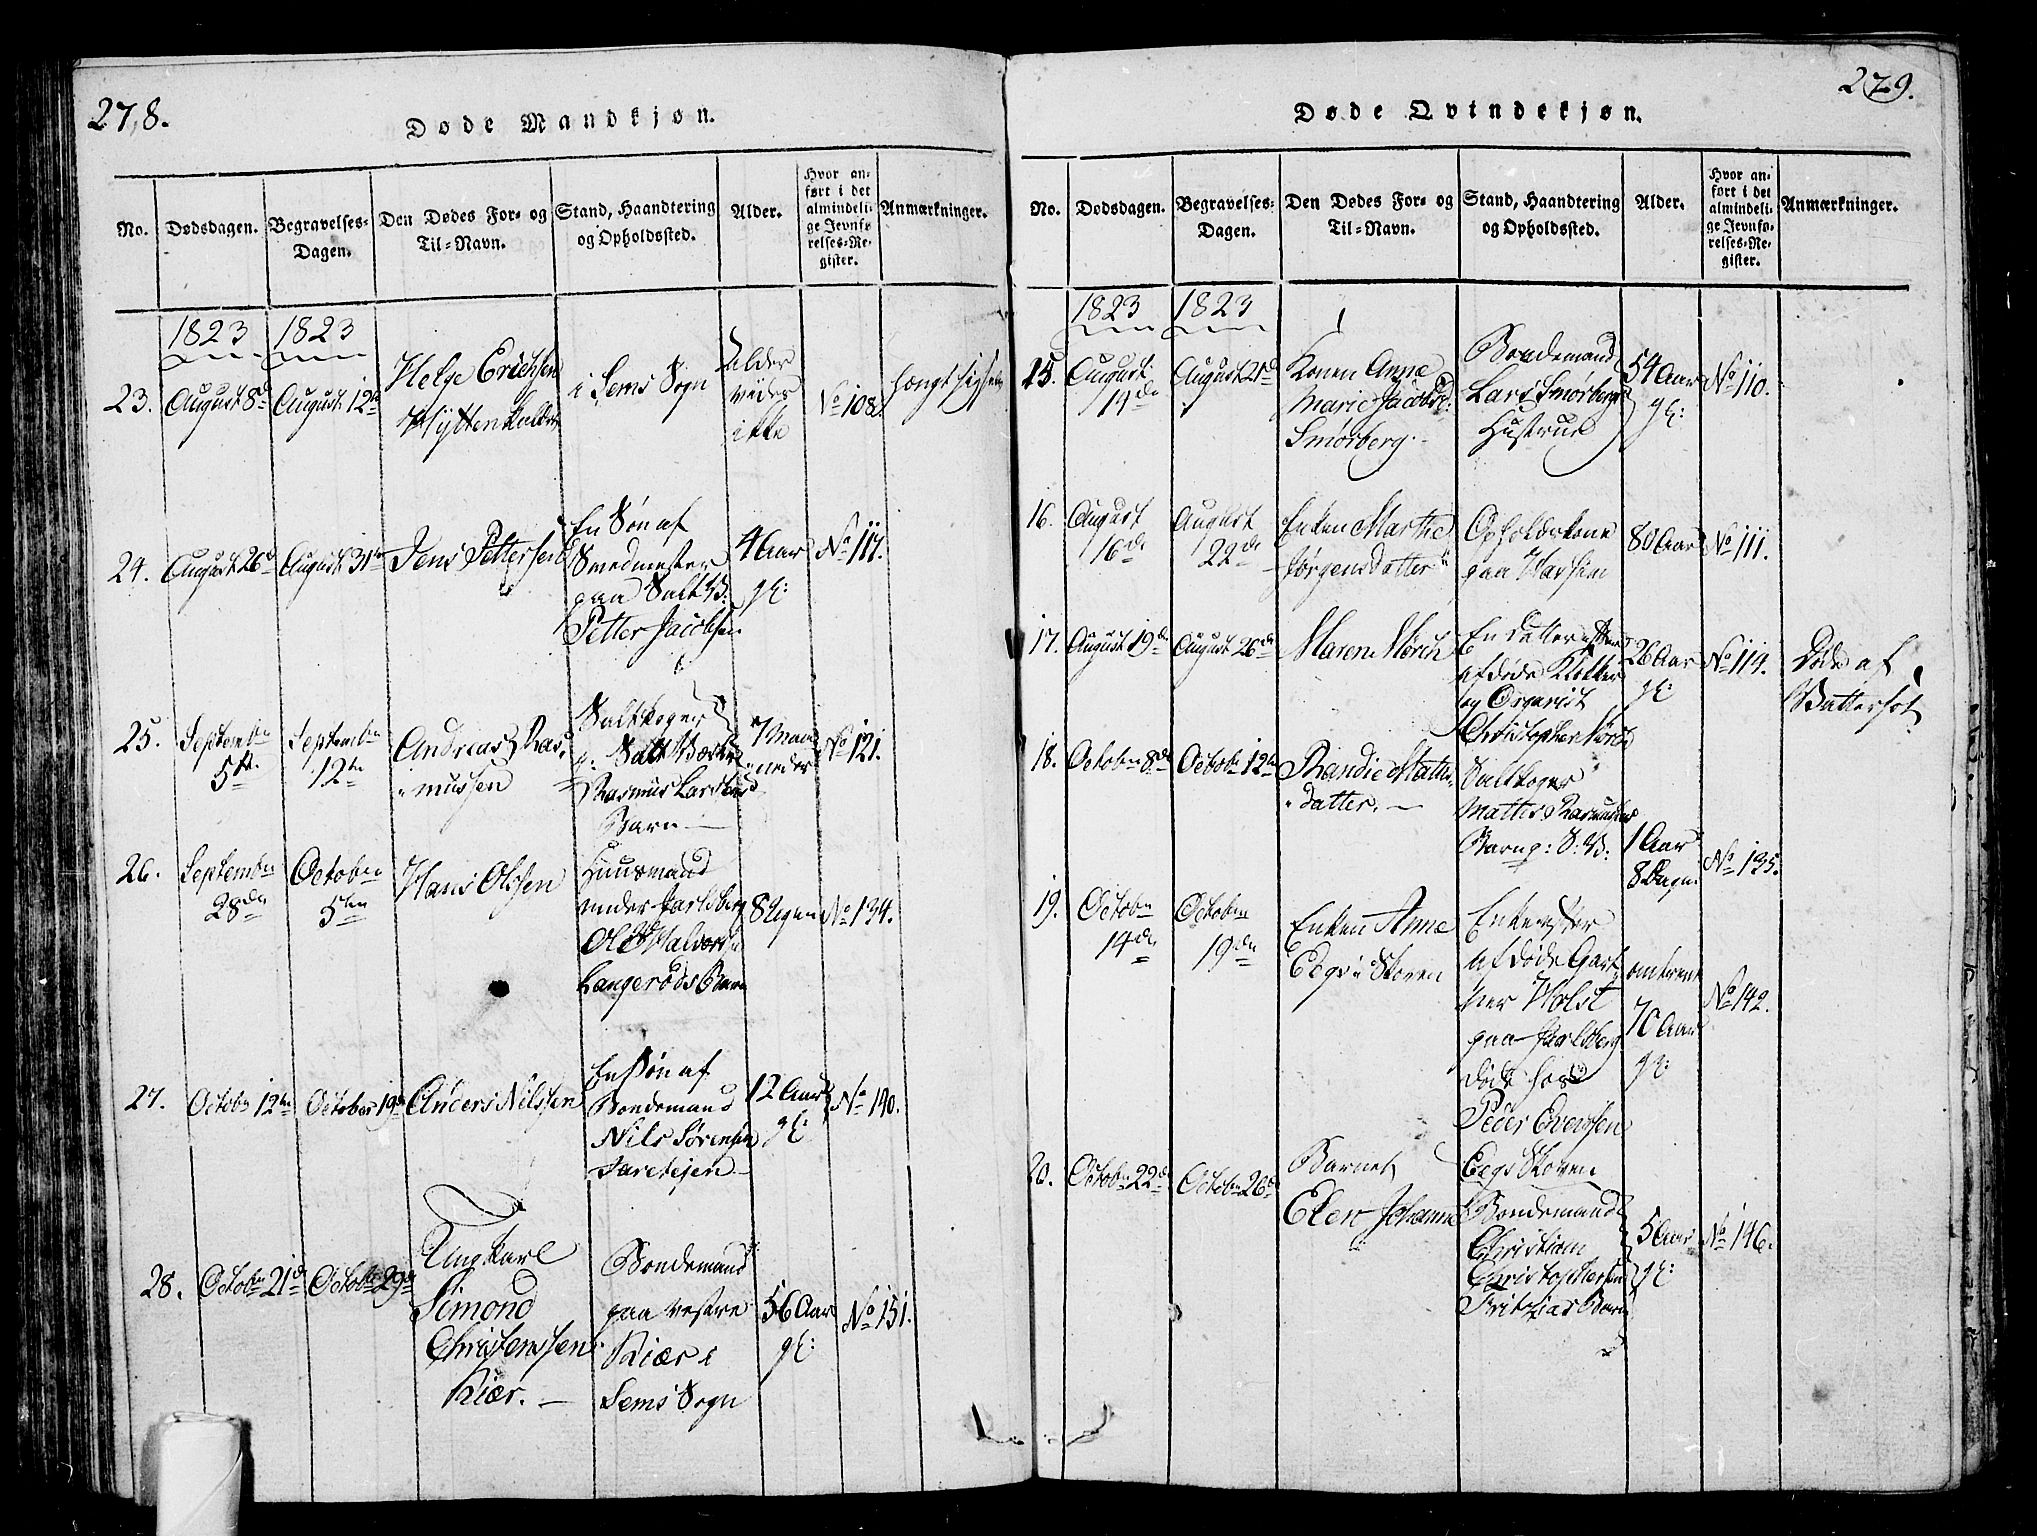 278.
Døde Mandkjøn.
No.
Dødsdagen.
Begravelses-
Dagen.
Den Dødes For- og
Til-Navn.
Stand, Haandtering
og Opholdssted.
Alder.
Hvor an-
ført i det
almindeli-
ge Jevnfø-
relses-Re-
gister.
Anmærkninger.
1823 1823
23. August 8d August 12te
Helge Erichsen
i Sems Sogn
Alder
vides
ikke
No 108
24. August 26d August 31te Jens Pettersen
En Søn af
Smedmester
paa Salt V:
Petter Jacobsen
4 Aar
gl:
No 117.
25. Septembr
5te
Septembr
12te
Andreas Ras-
mussen
Saltkoger
Rasmus Larsens
Barn
7 Maa-
neder
No 121.
26. September
28de
October
5ten
Hans Olssen
Huusmand
under Jarlsberg
Ole Halvorsen
Langerøds Barn
8 Ugen
No 134.
27. Octobr 12te October 19de Anders Nilssen
En Søn af
Bondemand
Nils Sørensen
12 Aar
gl:
No 140.
28. Octobr 21d Octobr 29de
Ungkarl
Simond
Christenssen
Kiær.
Bondemand
paa vestre
Kiær i
Sems Sogn
56 Aar
gl:
No 151.
279.
Døde Qvindekjøn.
No.
Dødsdagen.
Begravelses-
Dagen.
Den Dødes For- og
Til-Navn.
Stand, Haandtering
og Opholdssted.
Alder.
Hvor an-
ført i det
almindeli-
ge Jevnfø-
relses-Re-
gister.
Anmærkninger.
1823 1823
15. August
14de
August 21d
Konen Anne
Marie Jacobsd:
Smørberg.
Bondemand
Lars Smørbergs
Hustrue
54 Aar
gl:
No 110.
16. August
16de
August
22de
Enken Marthe
Jørgensdatter
Opholdskone
paa
80 Aar
No 111.
17. August 19de August 26de Maren Mørch
En datter efter
afdøde Klokker
og Organist
Christopher Mørch
26 Aar
gl:
No 114.
Døde af
Vattersot
18. Octobr 8de Octobr 12te
Randie Mathis-
datter.
Saltkoger
Mathis Rasmussens
Barn p: S: V:
1 Aar
8 Dage
No 135.
19. Octobr
14de
October
19de
Enken Anne
Eegs Skoven
Enke efter
afdøde Gart-
ner Holst
paa Jarlsberg
døde hos
Peder Evenssen
Eegs Skoven
omtrent
70 Aar
gl:
No 142.
20. Octobr 22d Octobr 26d
Barnet
Elen Johanne
Bondemand
Christian
Christophersen
Barn
5 Aar
gl:
No 146.